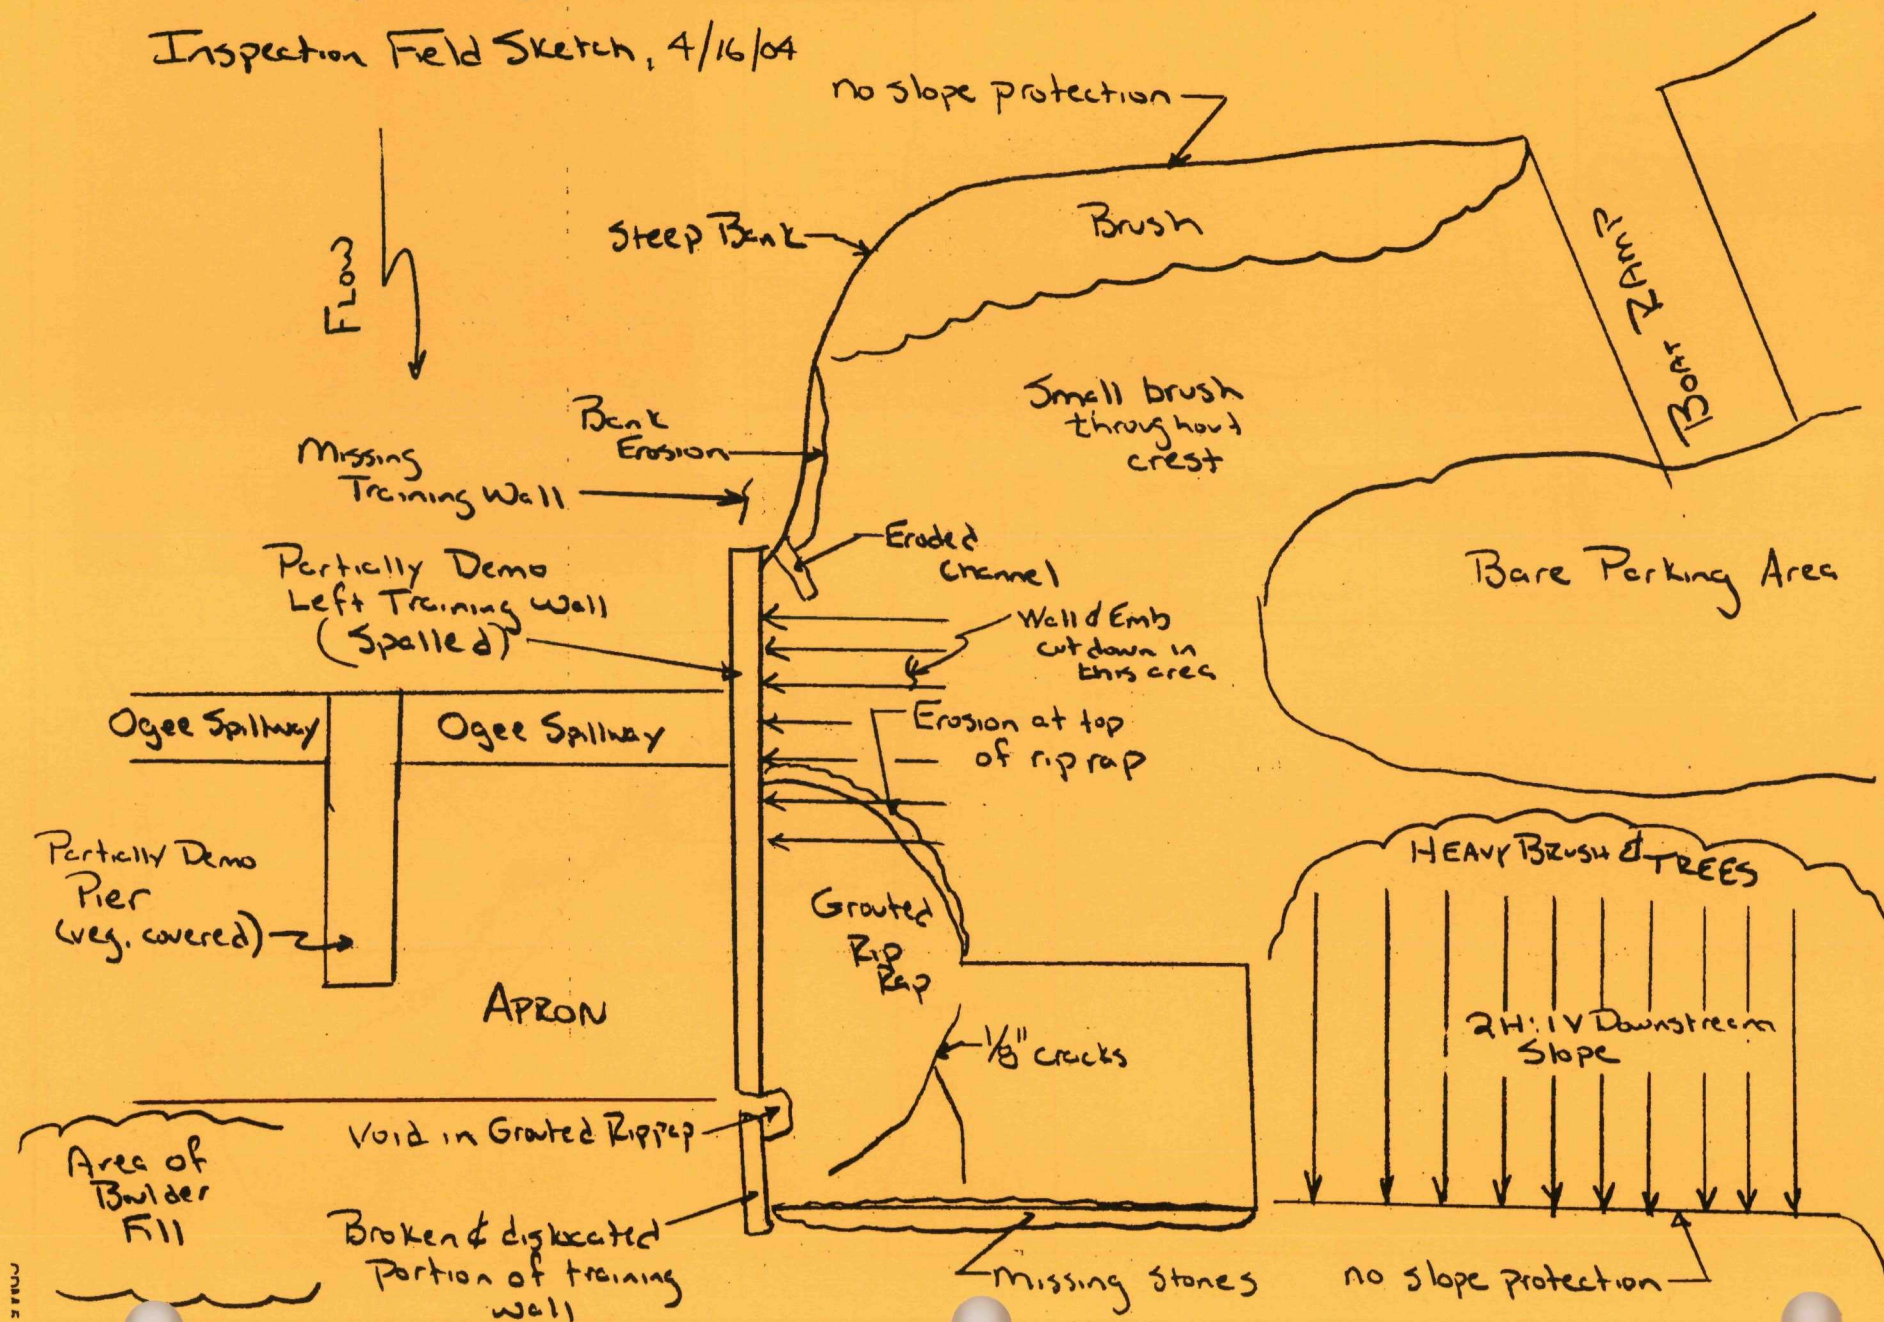 Inspection Field Sketch, 4/16/04
no slope protection
Steep Bank
Brush
Flow
Boat Ramp
Small brush
throughout
crest
Bank
Erosion
Missing
Training Wall
Eroded
Channel
Bare Parking Area
Partially Demo
Left Training Wall
(Spalled)
Wall & Emb
cut down in
this area
Ogee Spillway
Ogee Spillway
Erosion at top
of rip rap
Partially Demo
Pier
(veg. covered)
HEAVY BRUSH & TREES
Grouted
Rip
Rap
APRON
1/8" cracks
2H:1V Downstream
Slope
Void in Grouted Riprap
Area of
Boulder
Fill
Broken & dislocated
Portion of training
wall
Missing Stones
no slope protection